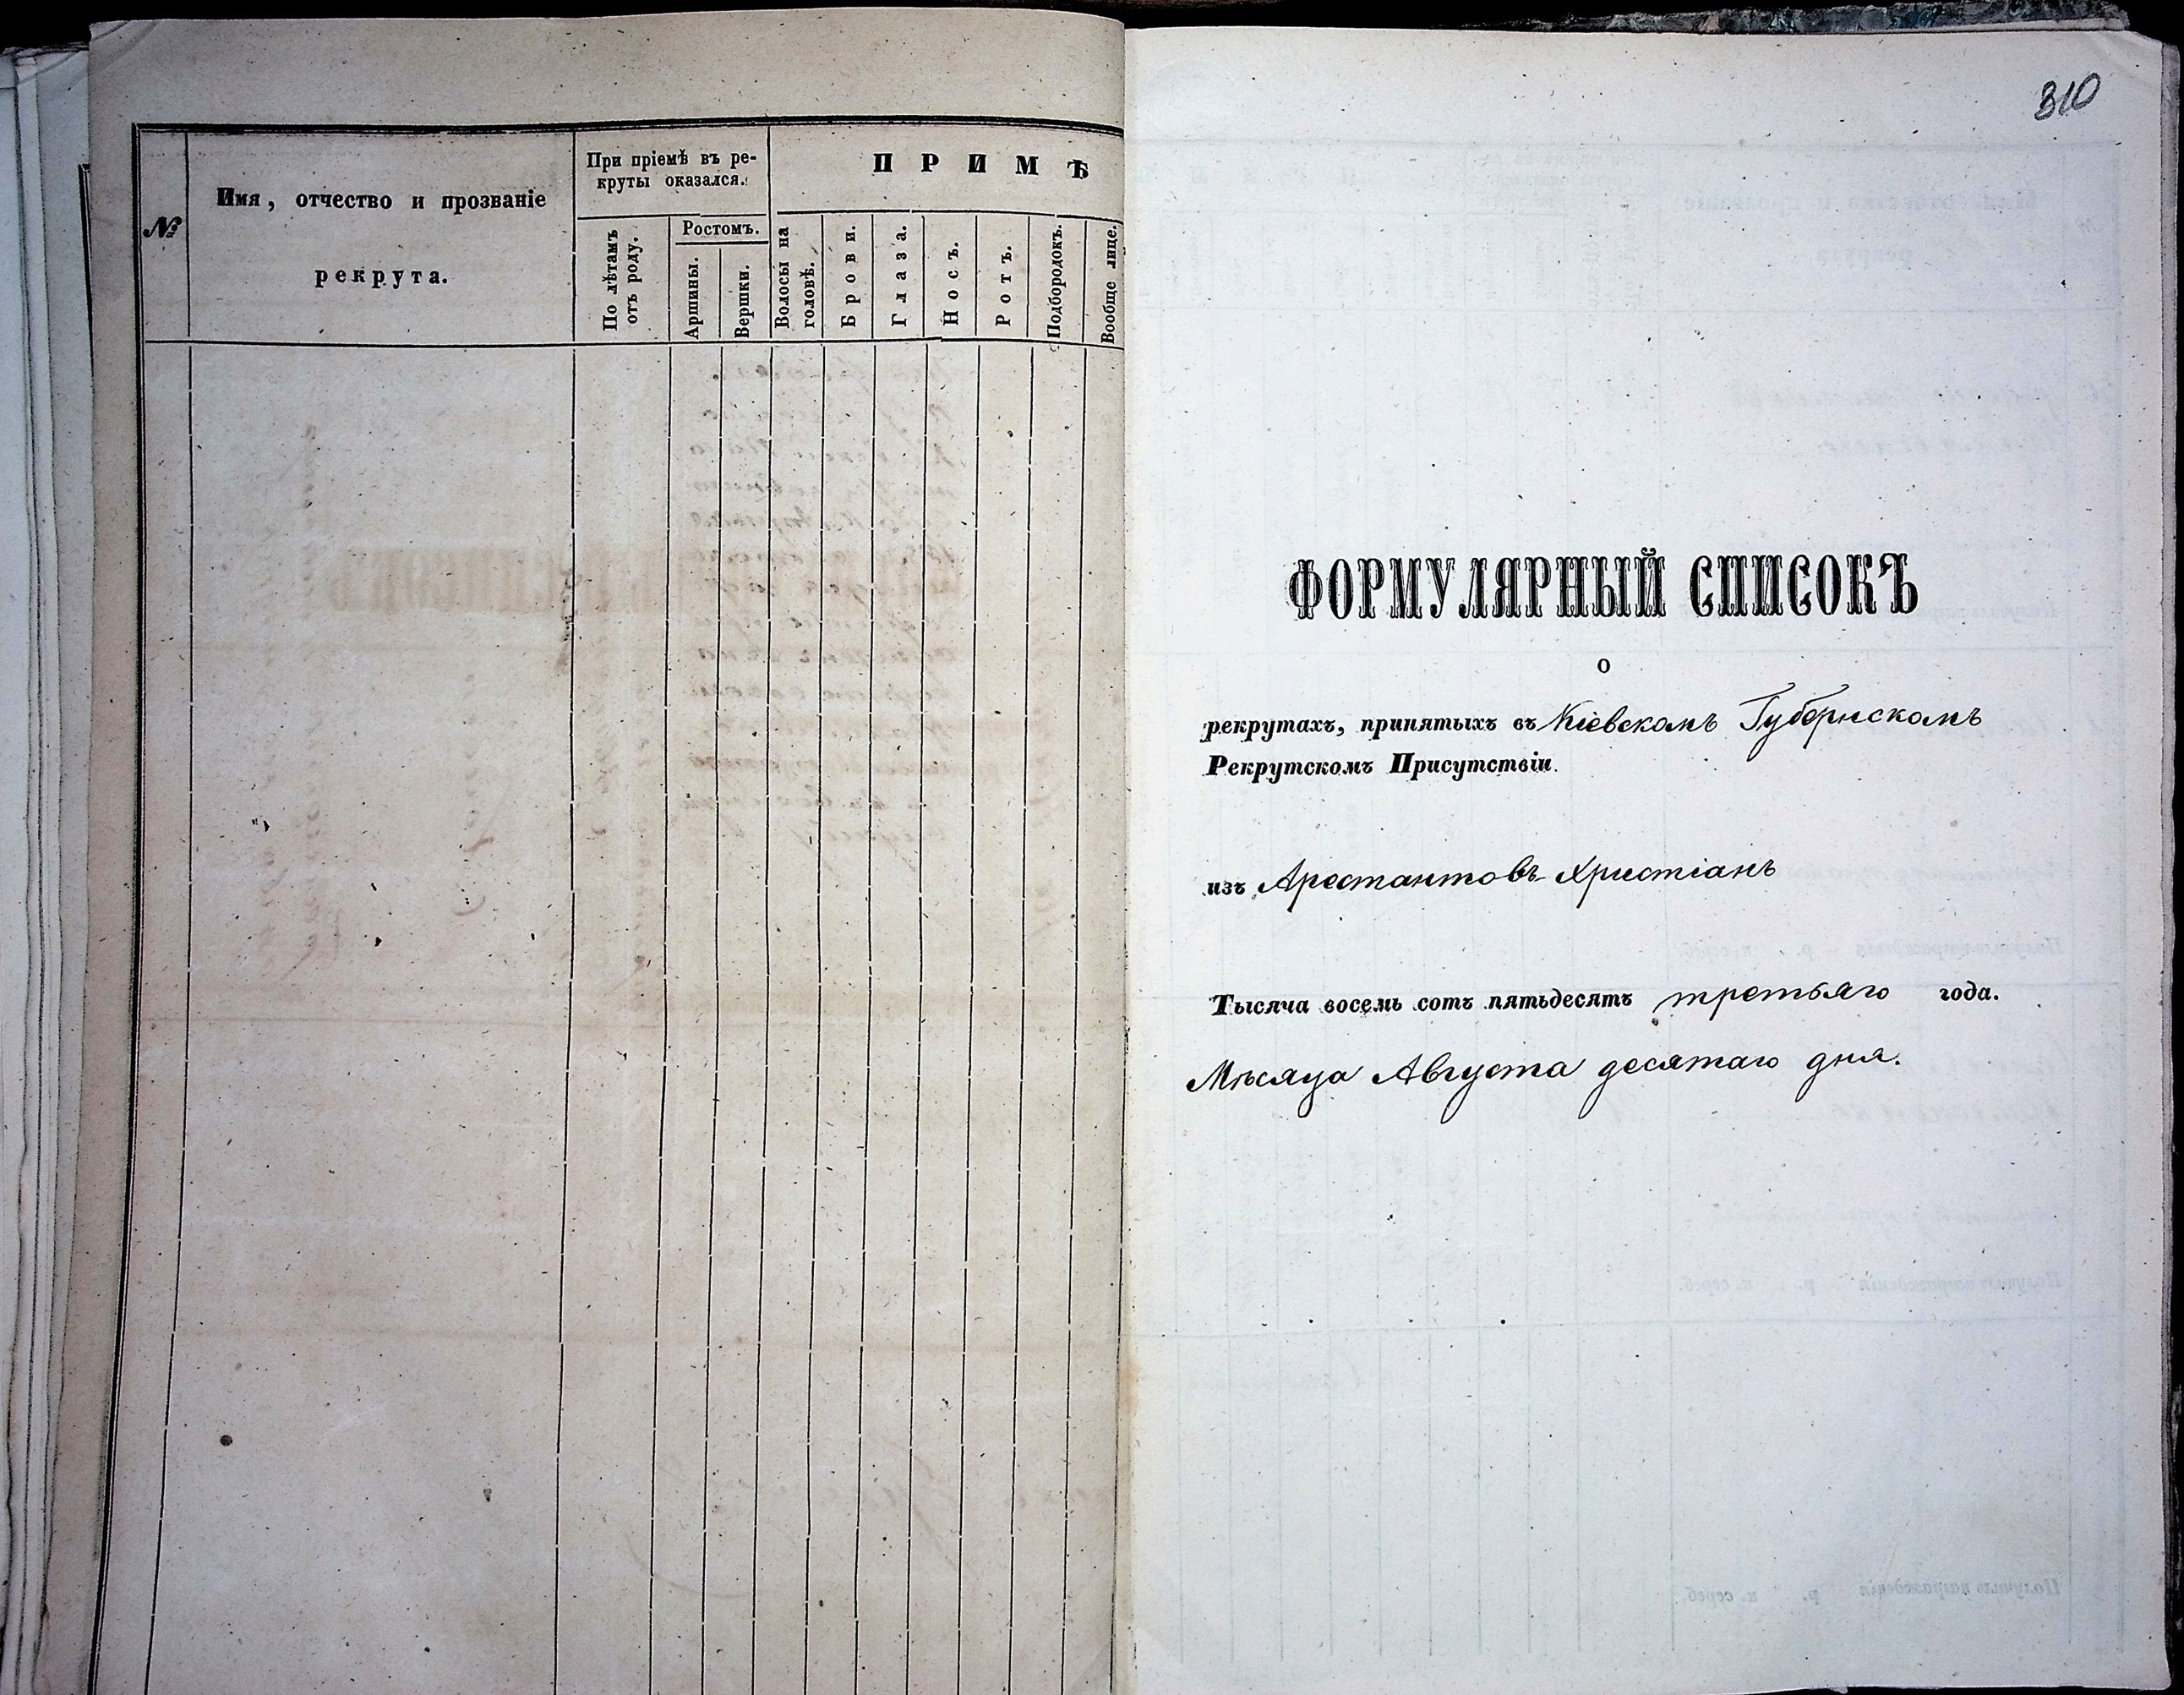 №
Имя, отчество и прозваніе
рекрута.
При пріемѣ въ ре-
круты оказался.
По лѣтамъ
отъ роду.
Ростомъ.
Аршины.
Вершки.
ПРИМѢ
Волосы на
головѣ.
Брови.
Глаза.
Носъ.
Ротъ.
Подбородокъ.
Вообще лице.
310
ФОРМУЛЯРНЫЙ СПИСОКЪ
о
рекрутахъ, принятыхъ въ Кіевскомъ Губернскомъ
Рекрутскомъ Присутствіи.
изъ Арестантовъ Христіанъ
Тысяча восемь сотъ пятьдесятъ третьяго года.
Мѣсяца Августа десятаго дня.